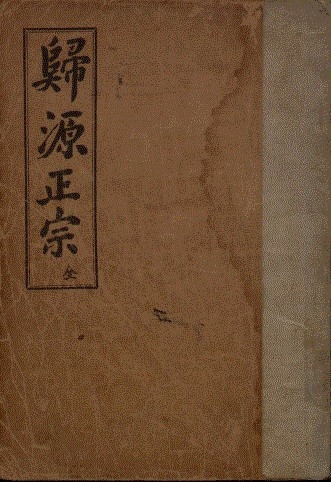 歸源正宗
全